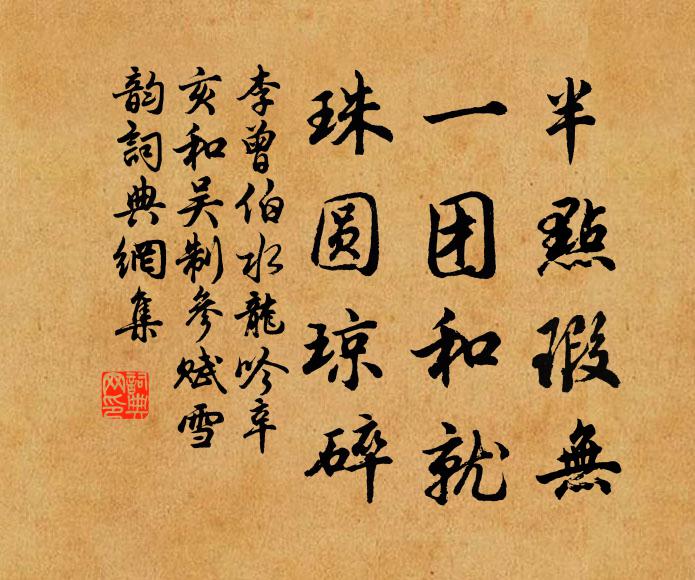 半點瑕無
一团和就
珠圆琼碎
李曾伯水龍吟辛
亥和吴制參赋雪
韵詞典網集
詞典网印